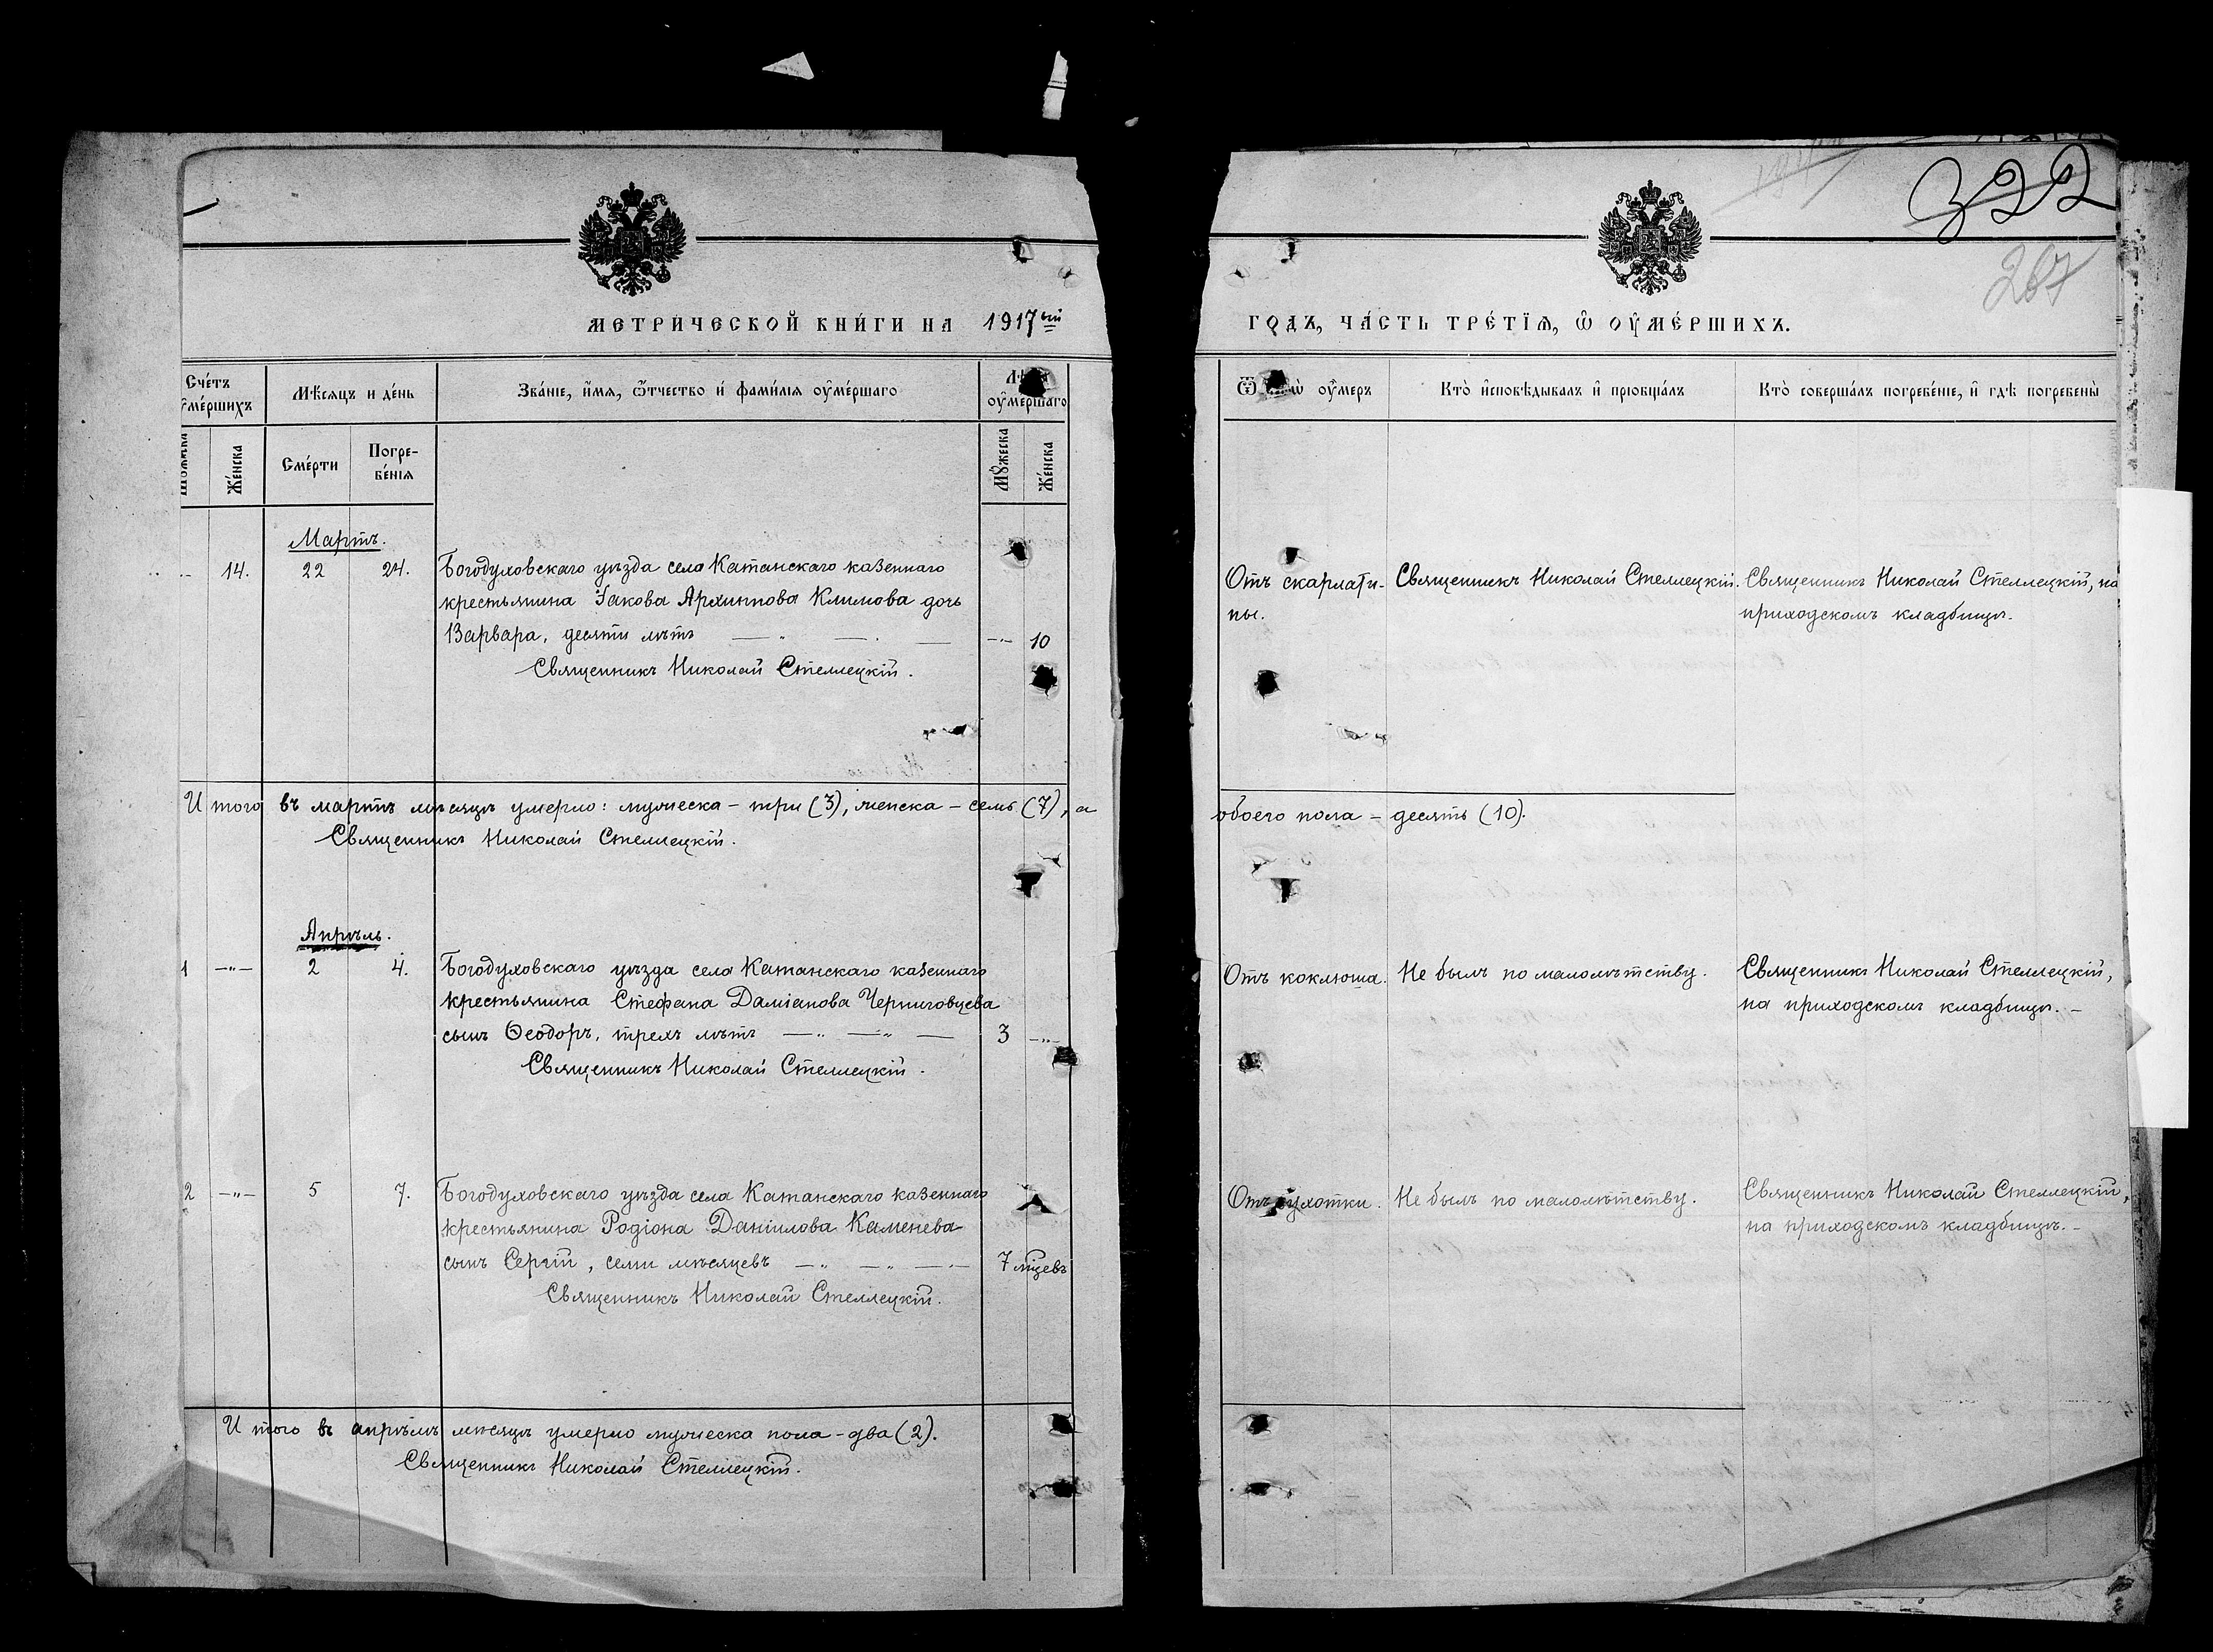 322
267
МЕТРИ́ЧЕСКОЙ КНИ́ГИ НА 1917ый
ГОДЪ, ЧА́СТЬ ТРЕ́ТЇѦ, Ѡ҆ ОУ҆МЕ́РШИХЪ.
Сче́тъ оу҆ме́ршихъ
Мѣ́сяцъ и де́нь
Зва́нїе, и҆́мя, ѻ҆́тчество и҆ фами́лїя оу҆ме́ршаго
Лѣта оу҆ме́ршаго
Ѿ чегѡ̀ оу҆́меръ
Кто̀ и҆сповѣ́дывалъ и҆ прїобща́лъ
Кто̀ соверша́лъ погребе́нїе, и҆ гдѣ̀ погребены̀
Мꙋжеска
Же́нска
Сме́рти
Погре-
бе́нїя
Мꙋ́жеска
Же́нска
Мартъ.
14. 22 24. Богодуховскаго уѣзда села Катанскаго казеннаго
крестьянина Іакова Архиппова Климова дочь
Варвара, десяти лѣтъ — " — . — —"— 10
Священникъ Николай Стеллецкій.
Отъ скарлати-
ны.
Священникъ Николай Стеллецкій.
Священникъ Николай Стеллецкій, на
приходскомъ кладбищѣ.
И того въ мартѣ мѣсяцѣ умерло: мужеска – три (3), женска – семь (7), а
обоего пола – десять (10).
Священникъ Николай Стеллецкій.
Апрѣль.
1 —"— 2 4. Богодуховскаго уѣзда села Катанскаго казеннаго
крестьянина Стефана Даміанова Черниговцева
сынъ Ѳеодоръ, трехъ лѣтъ — " — " — 3 —"—
Священникъ Николай Стеллецкій.
Отъ коклюша.
Не былъ по малолѣтству.
Священникъ Николай Стеллецкій,
на приходскомъ кладбищѣ. –
2 —"— 5 7. Богодуховскаго уѣзда села Катанскаго казеннаго
крестьянина Родіона Даніилова Каменева
сынъ Сергій, семи мѣсяцевъ — " — " — " — 7 мцевъ
Священникъ Николай Стеллецкій.
Отъ сухотки.
Не былъ по малолѣтству.
Священникъ Николай Стеллецкій,
на приходскомъ кладбищѣ. –
И того въ апрѣлѣ мѣсяцѣ умерло мужеска пола – два (2).
Священникъ Николай Стеллецкій.